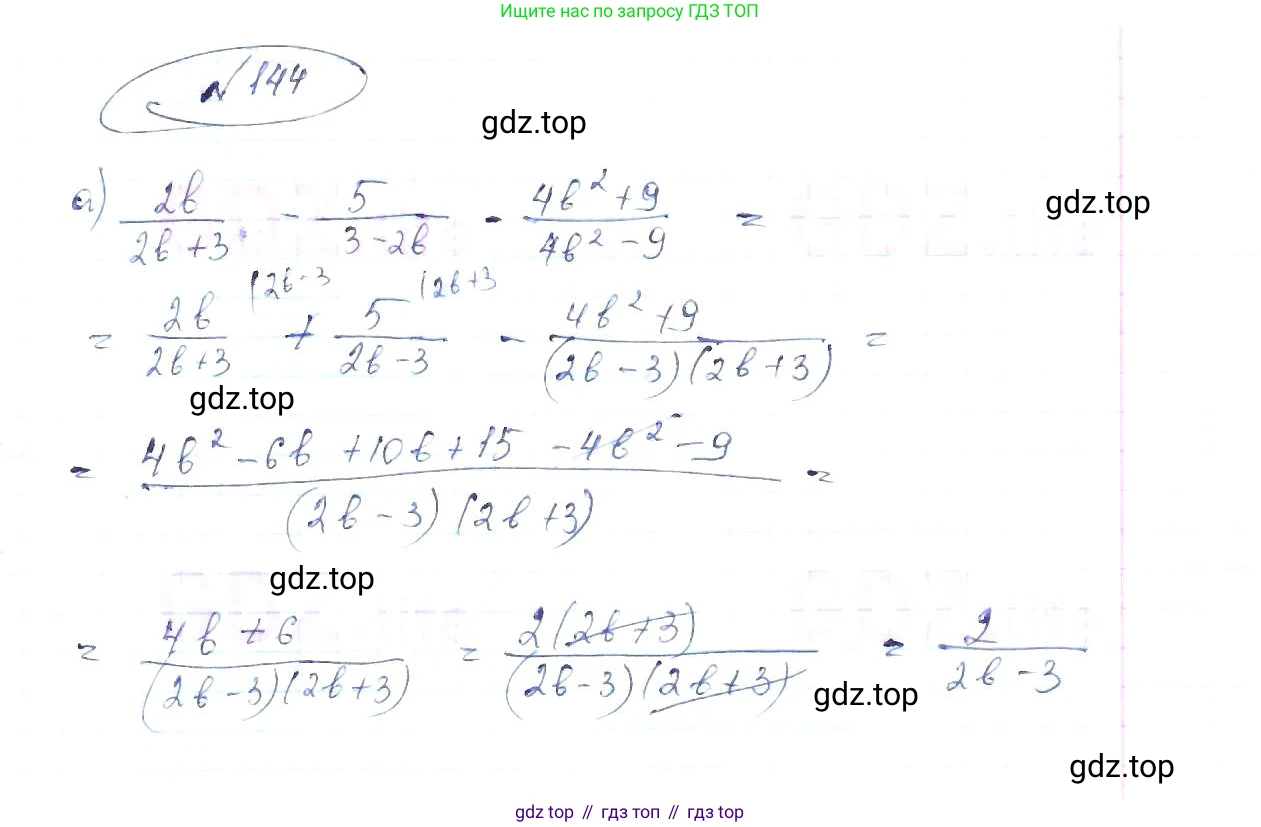 Ищите нас по запросу ГДЗ ТОП
№144
gdz.top
а) 2b/(2b+3) - 5/(3-2b) - (4b²+9)/(4b²-9) =
gdz.top
= 2b/(2b+3) (2b-3 + 5/(2b-3) (2b+3 - (4b²+9)/((2b-3)(2b+3)) =
gdz.top
= (4b²-6b+10b+15-4b²-9)/((2b-3)(2b+3)) =
gdz.top
= (4b+6)/((2b-3)(2b+3)) = 2(2b+3)/((2b-3)(2b+3)) = 2/(2b-3)
gdz.top
gdz.top
gdz top // гдз топ // gdz top